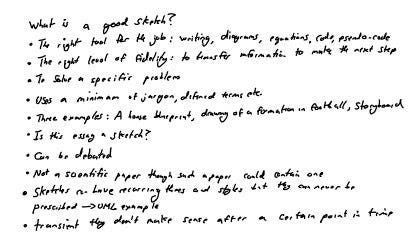 What is a good sketch?
• The right tool for the job: writing, diagrams, equations, code, pseudo-code
• The right level of fidelity: to transfer information to make the next step
• To solve a specific problem
• Uses a minimum of jargon, defined terms etc.
• Three examples: A house blueprint, drawing of a formation in football, Storyboard
• Is this essay a sketch?
• Can be debated
• Not a scientific paper though such a paper could contain one
• Sketches can have recurring themes and styles but they can never be
prescribed → UML example
• transient they don't make sense after a certain point in time